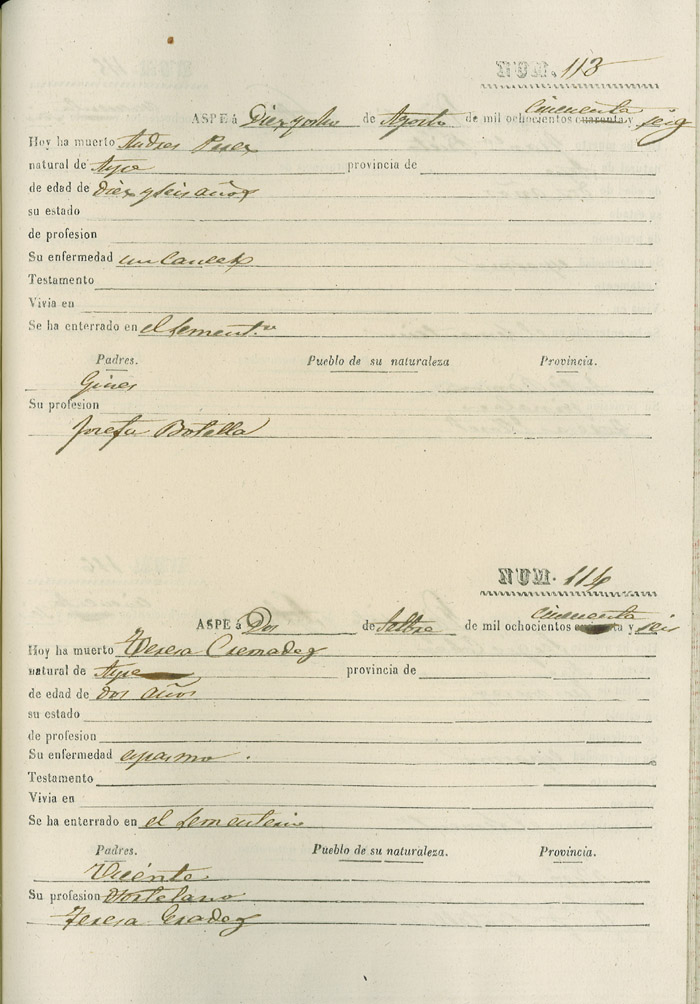 NUM. 113
cincuenta
ASPE á Diez y ocho de Agosto de mil ochocientos cuarenta y seis
Hoy ha muerto Andres Perez
natural de Aspe provincia de
de edad de diez y seis años
su estado
de profesion
Su enfermedad un Cancer
Testamento
Vivia en
Se ha enterrado en el Sement.º
Padres. Pueblo de su naturaleza Provincia.
Gines
Su profesion
Josefa Botella
NUM. 114
cincuenta
ASPE á Dos de Setbre de mil ochocientos cuarenta y seis
Hoy ha muerto Teresa Cremadez
natural de Aspe provincia de
de edad de dos años
su estado
de profesion
Su enfermedad espasmo.
Testamento
Vivia en
Se ha enterrado en el Sementerio
Padres. Pueblo de su naturaleza. Provincia.
Vicente
Su profesion Hortelano
Teresa